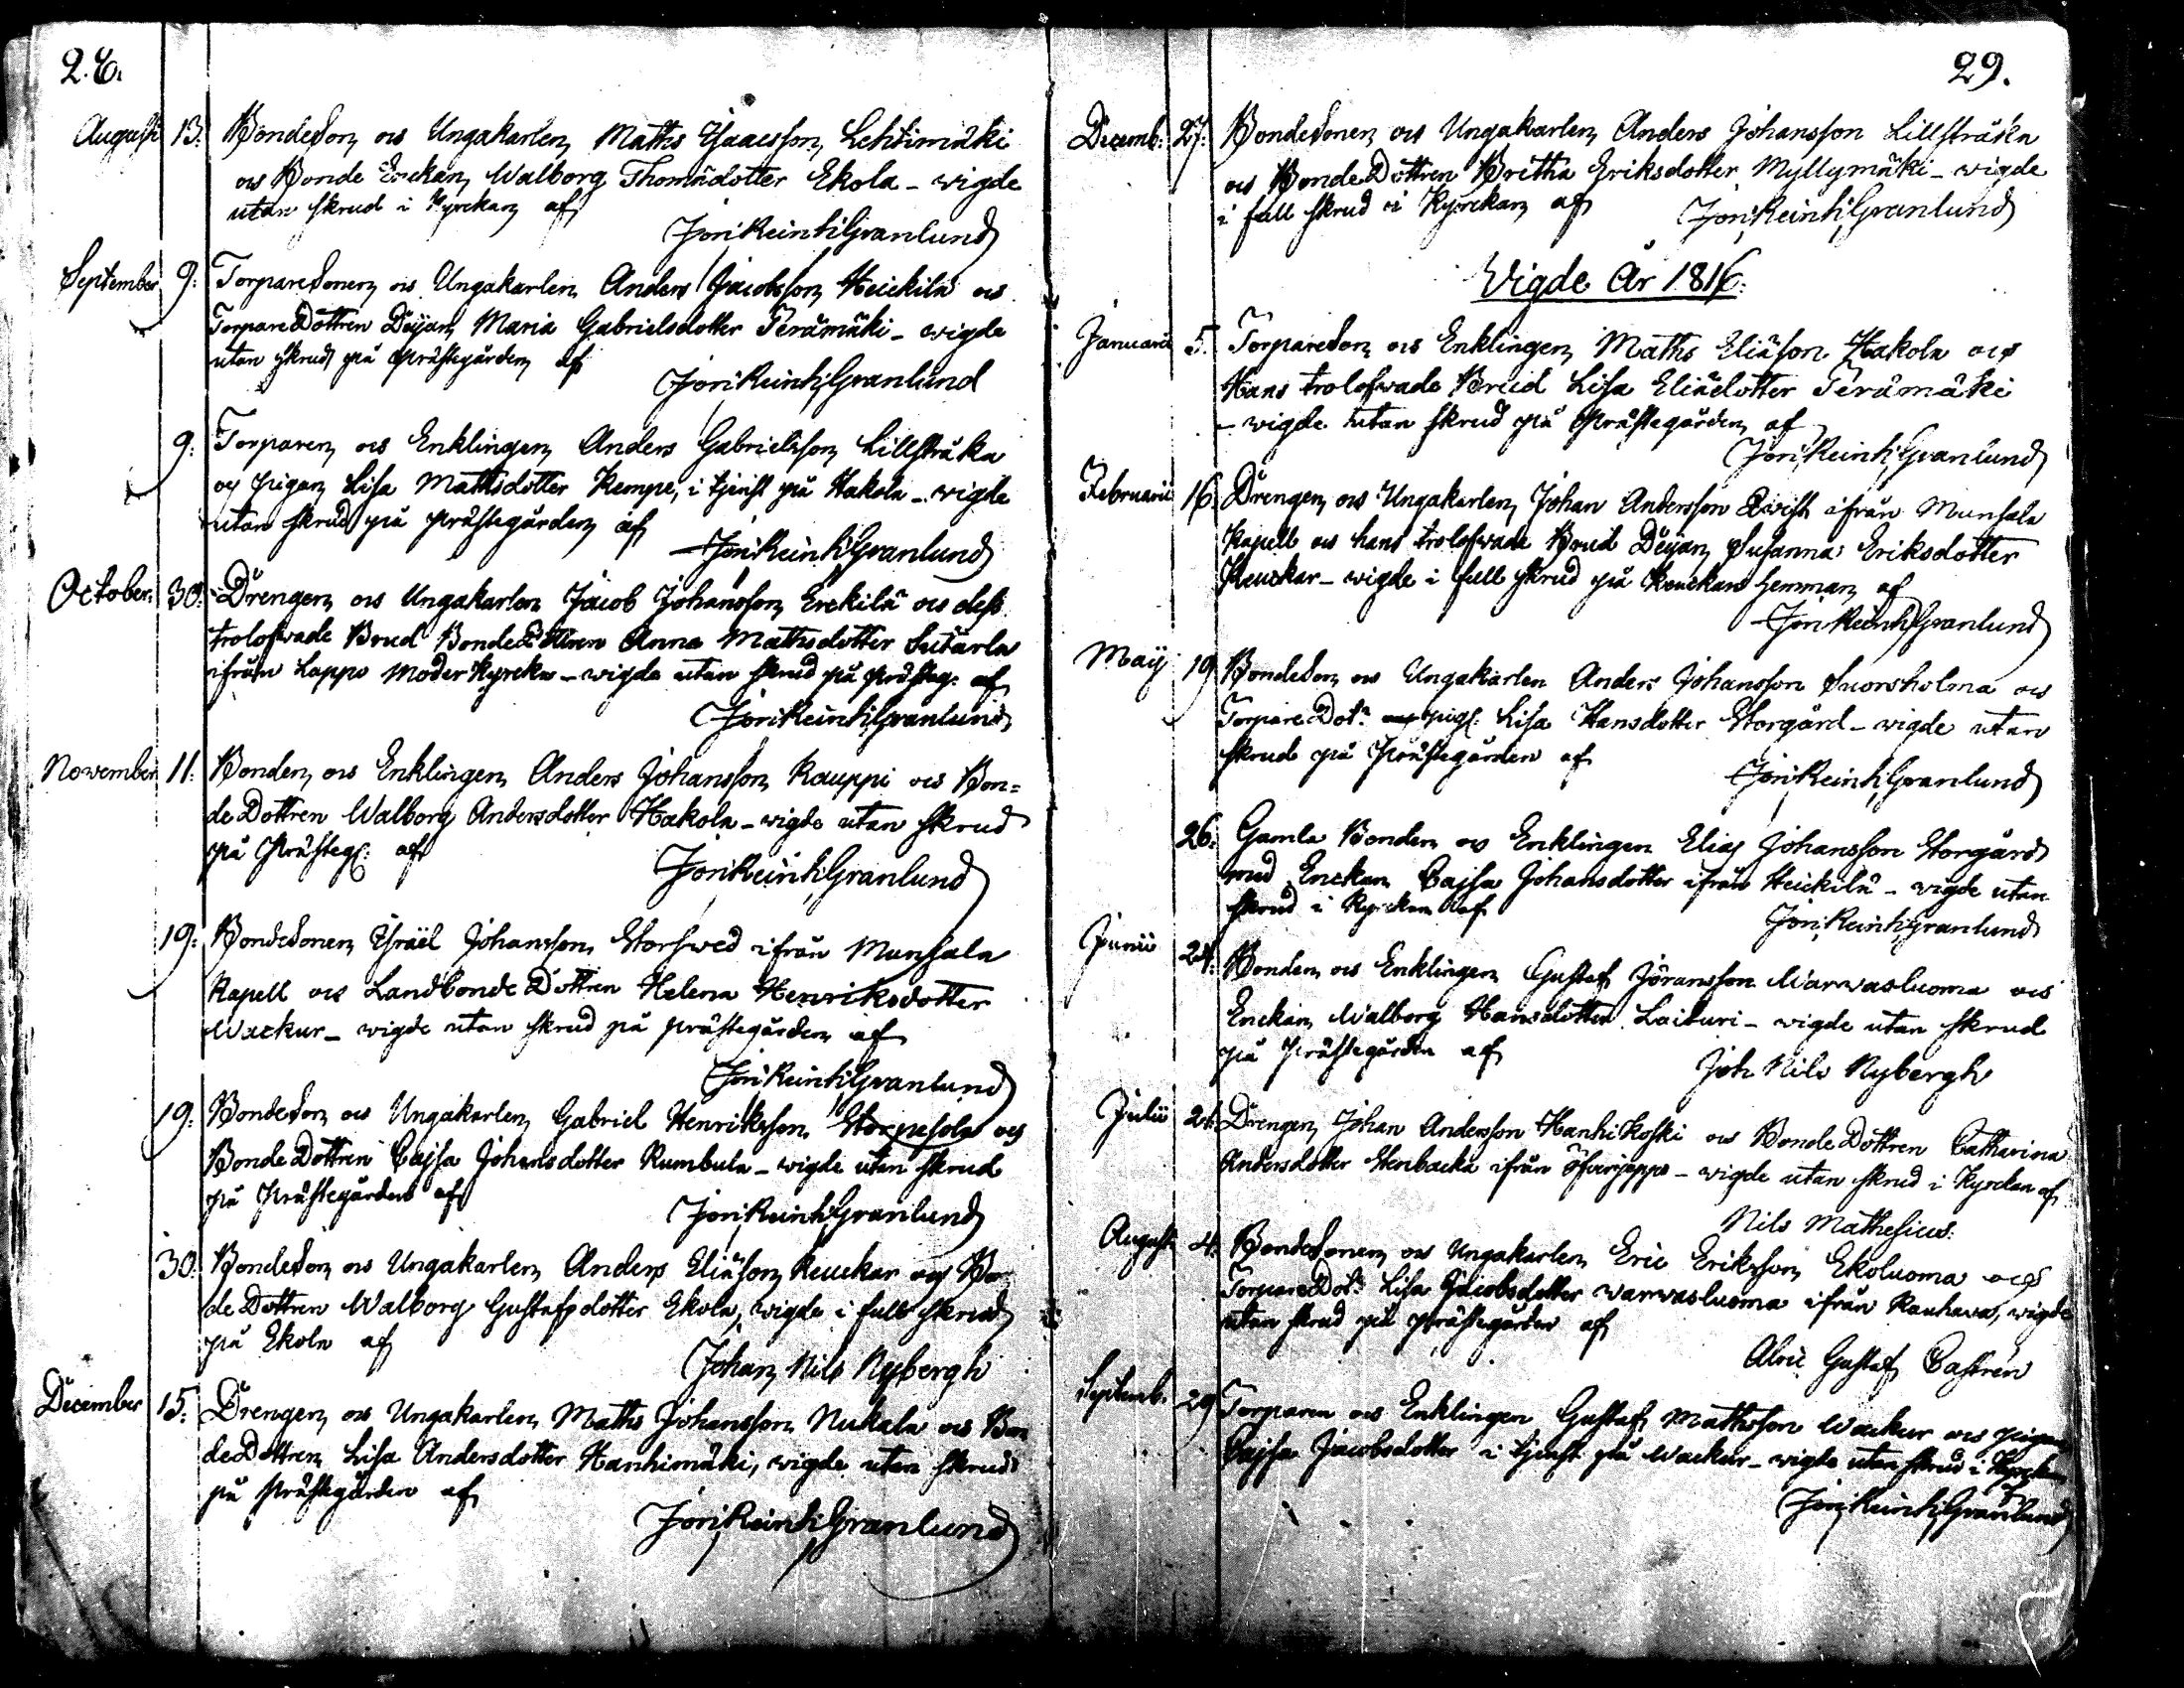 28.
Augusti 13: BondeSon, os Ungakarlen, Maths Isaacsson, Lehtimäki
os Bonde Enckan, Walborg Thomädotter Ekola - wigde
utan skrud i Kyrckan af
Jöri Reinh: Granlund
September 9: TorpareSonen, os Ungakarlen Anders Jacobsson, Heickilä os
TorpareDottren Deijan, Maria Gabrielsdotter Perämäki - wigde
utan skrud på Prästegården af
Jöri Reinh: Granlund
9: Torparen, os Enklingen, Anders Gabrielsson, Lillstråka
os pigan, Lisa Mathsdotter Kempe, i tjenst på Hakola - wigde
utan skrud på prästegården af
Jöri Reinh: Granlund
October: 30: Drengen, os Ungakarlen Jacob Johansson, Erckilä os dess
trolofwade Brud BondeDottren Anna Mathsdotter
ifrån Lappo Moder Kyrcka - wigde utan skrud på prästeg: af
Jöri Reinh: Granlund
November 11: Bonden, os Enklingen, Anders Johansson, Kauppi os Bon=
deDottren Walborg Andersdotter Hakola - wigde utan skrud
på Prästeg: af
Jöri Reinh: Granlund
19: BondeSonen, Israël Johansson, Storswed ifrån Munsala
Kapell os Landbonde Dottren Helena Henriksdotter
Wackur - wigde utan skrud på prästegården af
Jöri Reinh: Granlund
19: BondeSon, os Ungakarlen, Gabriel Henriksson, Storpesola os
BondeDottren Cajsa Johansdotter Rumbula - wigde utan skrud
på Prästegården af
Jöri Reinh: Granlund
30: BondeSon, os Ungakarlen, Anders Eliäson, Keuckar os Bon
deDottren Walborg Gustafsdotter Ekola, wigde i full skrud
på Ekola af
Johan Nils Nybergh
December 15: Drengen, os Ungakarlen, Maths Johansson Nukala os Bon
deDottren Lisa Andersdotter Hanhimäki, wigde utan skrud
på Prästegården af
Jöri Reinh: Granlund
29.
Decemb: 27: BondeSonen, os Ungakarlen, Anders Johansson Lillstråka
os BondeDottren Britha Eriksdotter Myllymäki - wigde
i full skrud i Kyrckan af Jöri Reinh: Granlund
Wigde År 1816.
Januarii 5. TorpareSon, os Enklingen, Maths Eliäson Hakola os
Hans trolofwade Brud Lisa Eliädotter Perämäki
- wigde utan skrud på Prästegården af
Jöri Reinh: Granlund
Februarii 16. Drengen, os Ungakarlen, Johan Andersson Qwist ifrån Munsala
Kapell os hans trolofwade Brud Deijan, Susanna Eriksdotter
Keuckar - wigde i full skrud på Keuckars Hemman, af
Jöri Reinh: Granlund
Maij 19 BondeSon, os Ungakarlen Anders Johansson Suorsholma os
TorpareDotr pig: Lisa Hansdotter Storgård - wigde utan
skrud på Prästegården af
Jöri Reinh: Granlund
26: Gamla Bonden os Enklingen Elias Johansson Storgård
med Enckan Cajsa Johansdotter ifrån Heickilä - wigde utan
skrud i Kyrckan af
Jöri Reinh: Granlund
Junii 24: Bonden, os Enklingen, Gustaf Jöransson Warwasluoma os
Enckan, Walborg Hansdotter Laituri - wigde utan skrud
på Prästegården af
Joh Nils Nybergh
Julii 21. Drengen, Johan Andersson Hanhikoski os BondeDottren Catharina
Andersdotter Stenbacka ifrån Öfwerjeppo - wigde utan skrud i Kyrckan af
Nils Mathesius.
Augusti 4: BondeSonen, os Ungakarlen, Eric Eriksson, Ekoluoma os
TorpareDotr Lisa Jacobsdotter Warwasluoma ifrån Kauhava, wigde
utan skrud på Prästegården af
Gustaf Castrén
Septemb. 29 Torparen os Enklingen Gustaf Mathsson Wackur os pigan
Cajsa Jacobsdotter i tjenst på Wackur - wigde utan skrud i Kyrckan
af
Jöri Reinh: Granlund